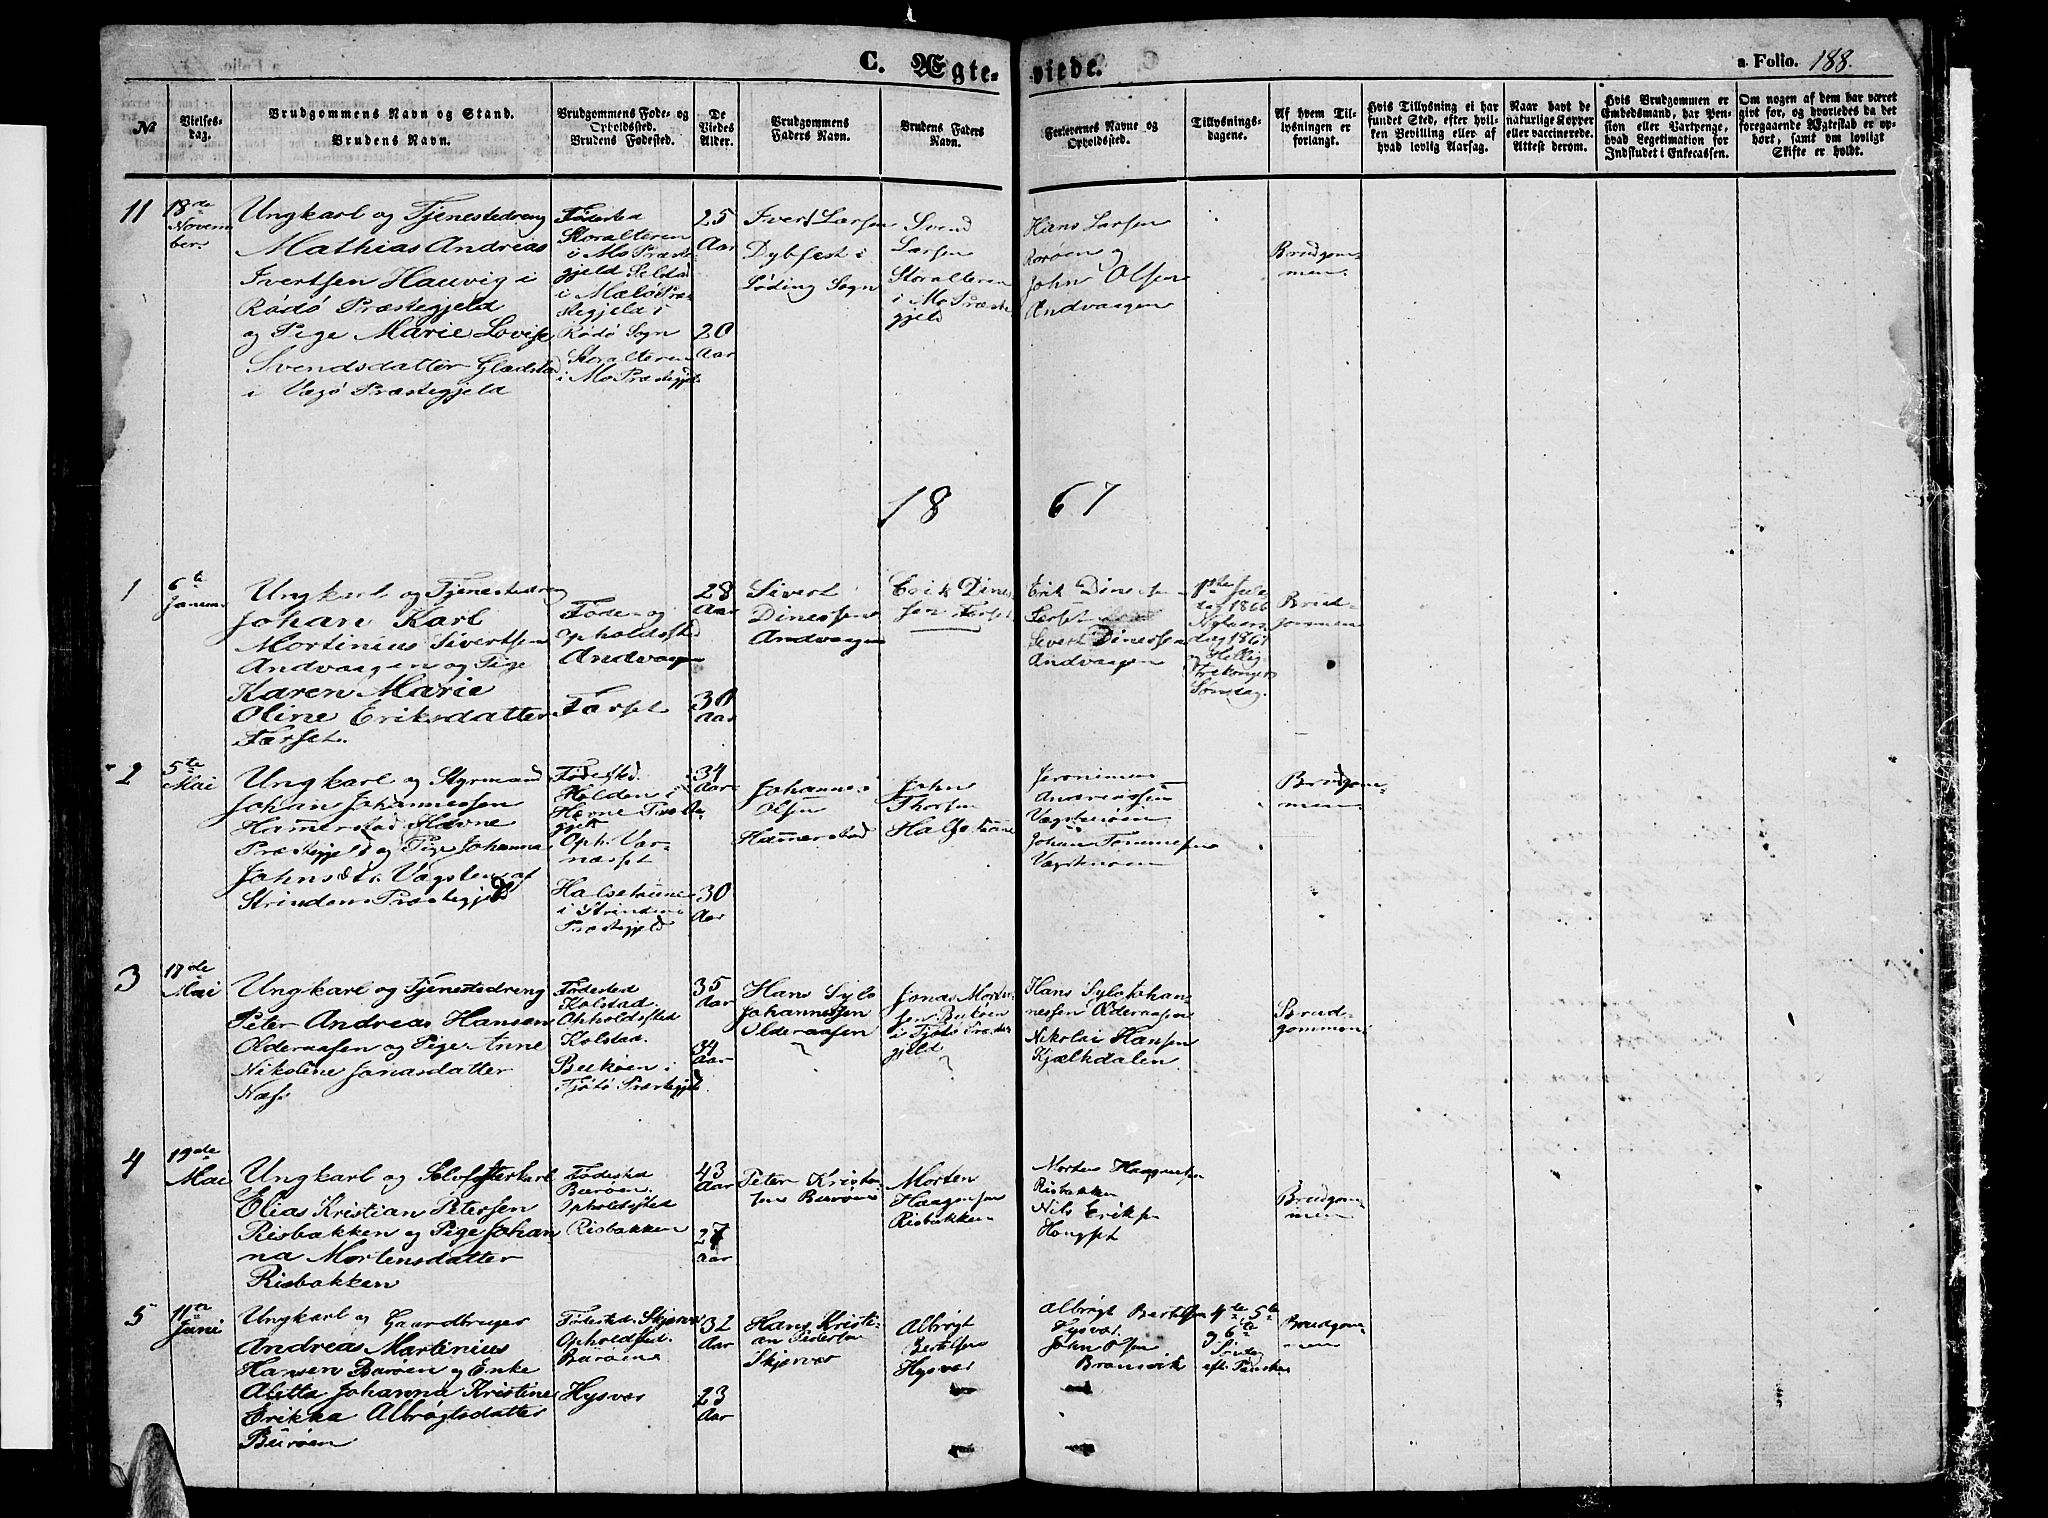 C. Ægte-
viede.
a Folio. 188.
№
Vielses-
dag.
Brudgommens Navn og Stand.
Brudens Navn.
Brudgommens Føde- og
Opholdssted.
Brudens Fødested.
De
Viedes
Alder.
Brudgommens
Faders Navn.
Brudens Faders
Navn.
Forlovernes Navne og
Opholdssted.
Tillysnings-
dagene.
Af hvem Til-
lysningen er
forlangt.
Hvis Tillysning ei har
fundet Sted, efter hvil-
ken Bevilling eller af
hvad lovlig Aarsag.
Naar havt de
naturlige Kopper
eller vaccinerede.
Attest derom.
Hvis Brudgommen er
Embedsmand, har Pen-
sion eller Vartpenge,
hvad Legetimation for
Indskudet i Enkecassen.
Om nogen af dem har været
givt for, og hvorledes da det
foregaaende Ægteskab er op-
hørt, samt om lovligt
Skifte er holdt.
11
18de
Novem
ber.
Ungkarl og Tjenestedreng
Mathias Andreas
Ivertsen Hauvig i
Rødø Præstegjeld
og Pige Marie Lovise
Svendsdatter Gladstad
i Vegø Præstegjeld
Fødested
Storalteren
i Mo Præste-
gjeld
Rødø Sogn
Storalteren
i Mo Præstegjeld
25
Aar
20
Aar
Ivert Larsen
Dybfest i
Løding Sogn
Svend
Larsen
Storalteren
i Mo Præste-
gjeld
Hans Larsen
Rorøen og
John Olsen
Andvaagen
Brudgom-
men
18 67
1
6te
Januar
Ungkarl og Tjenestedreng
Johan Karl
Mortinius Sivertsen
Andvaagen og Pige
Karen Marie
Oline Eriksdatter
Færset.
Føde- og
Opholdssted
Andvaagen
Færset
28
Aar
30
Aar
Sivert
Dinessen
Andvaagen
Erik Dines-
sen Færset
Erik Dinessen
Færset
Sivert Dinessen
Andvaagen
1ste Jule
dag 1866
Nytaars
dag 1867
og Hellig-
trekongers
Søndag.
Brud-
gommen
2
5te
Mai
Ungkarl og Styrmand
Johan Johannessen
Hammerstad Hevne
Præstegjeld og Pige Johanna
Johnsdtr. Vægsten af
Strindens Præstegjeld
Fødested.
Holden i
Hevne Præste
gjeld
Oph. Vær-
næsset
Halsetaune
i Strindens
Præstegjeld
34
Aar
30
Aar
Johannes
Olsen
Hammerstad
John
Thorsen
Halsetaune
Jeronimus
Andreassen
Johan Tommesen
Brudgom-
men
3
17de
Mai
Ungkarl og Tjenestedreng
Peter Andreas Hansen
Olderaasen og Pige Anne
Nikoline Jonasdatter
Næss
Fødested
Kolstad.
Opholdssted
Kolstad.
Bukøen i
Tjøtø Præstegjeld
35
Aar
34
Aar
Hans Sylo
Johannessen
Olderaasen
Jonas Morten-
sen Bukøen
i Tjøtø Præste-
gjeld
Hans Sylo Johan-
nessen Olderaasen
Nikolai Hansen
Kjælkdalen
Brud-
gommen
4
19de
Mai
Ungkarl og Selvfosterkarl
Elias Kristian Petersen
Risbakken og Pige Johan
na Mortensdatter
Risbakken
Fødested
Burøen.
Opholdssted
Risbakken
43
Aar
27
Aar
Peter Kristen-
sen Burøen
Morten
Haagensen
Risbakken
Morten Haagensen
Risbakken
Nils Eriksen
Brudgom-
men
5
11te
Juni
Ungkarl og Gaardbruger
Andreas Martinius
Hansen Burøen og Enke
Aletta Johanna Kristine
Erikka Albrøgtsdatter
Burøen
Fødested. Skjervær
Opholdssted.
Burøen
Hysvær
32
Aar
23
Aar
Hans Kristi-
an Pedersen
Skjervær
Albrøgt
Bertelsen
Hysvær
Albrøgt Bertelsen
Hysvær.
John Olsen
Bremsvik
4te, 5te
og 6te
Søndag
efter Paaske
Brudgom-
men